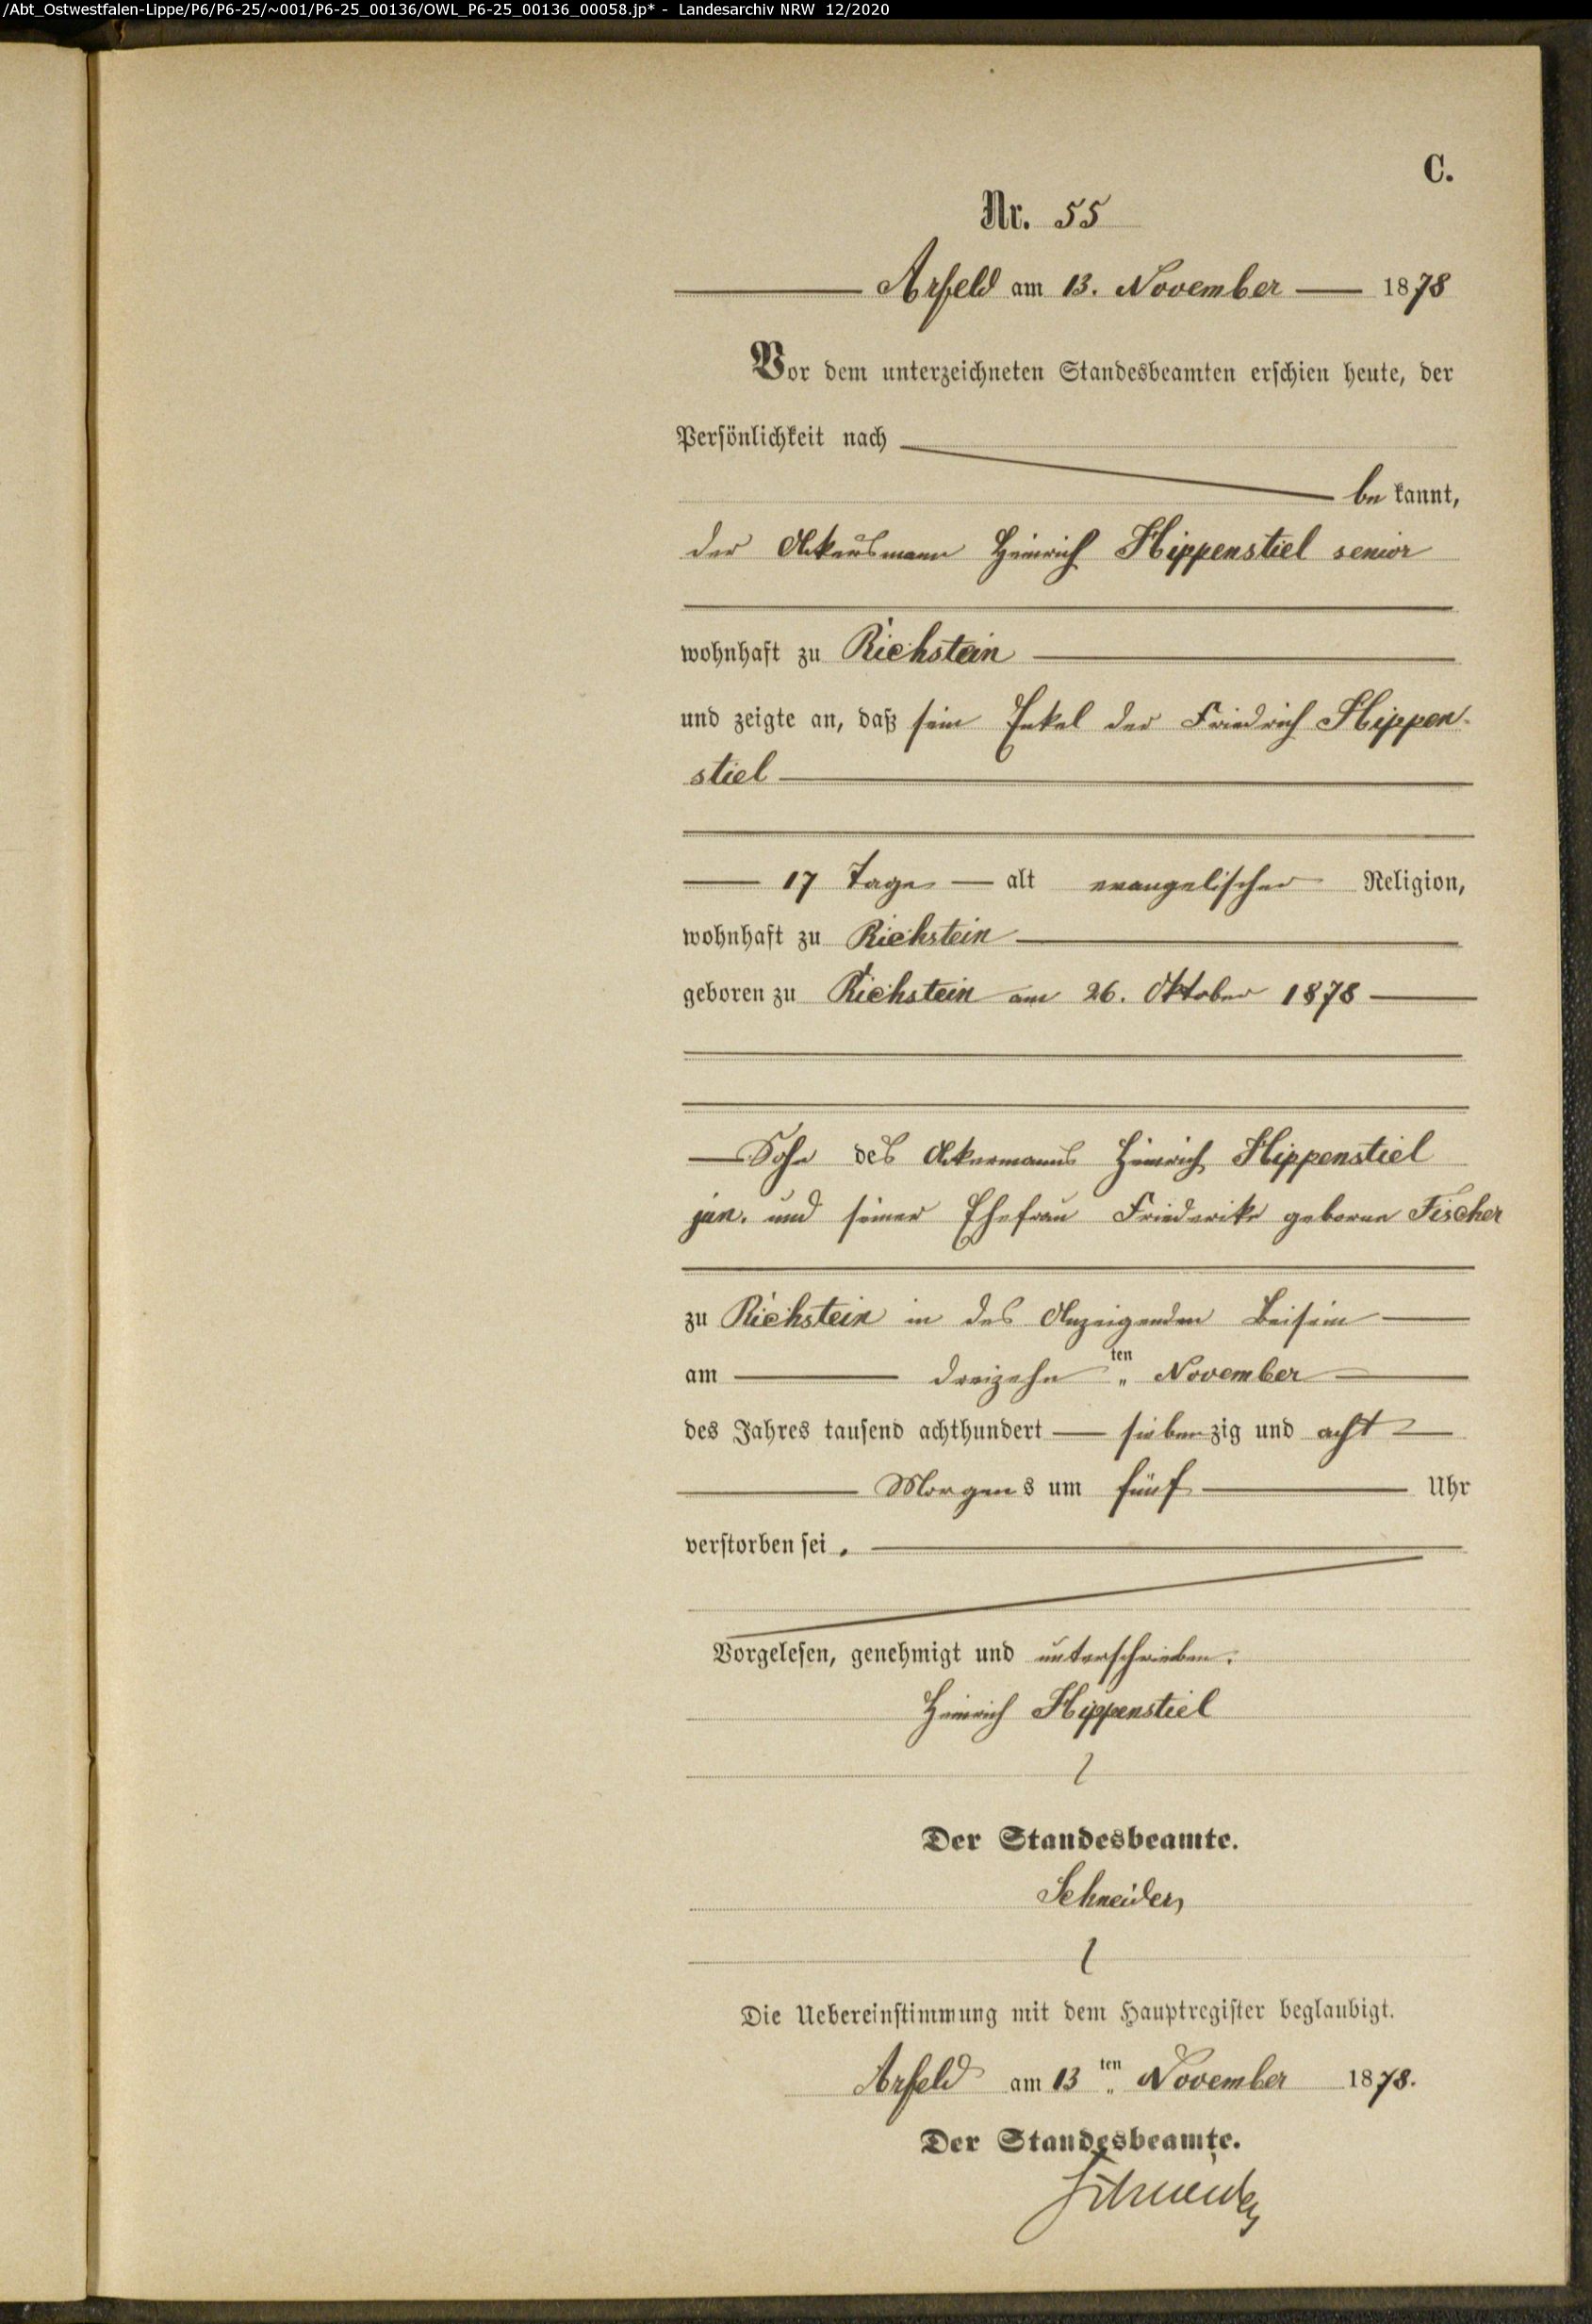 /Abt_Ostwestfalen-Lippe/P6/P6-25/~001/P6-25_00136/OWL_P6-25_00136_00058.jp* - Landesarchiv NRW 12/2020
C.
Nr. 55
Arfeld am 13. November 1878
Vor dem unterzeichneten Standesbeamten erschien heute, der
Persönlichkeit nach
be kannt,
der Ackersmann Heinrich Hippenstiel senior
wohnhaft zu Richstein
und zeigte an, daß sein Enkel der Friedrich Hippen-
stiel
17 Tage alt evangelischer Religion,
wohnhaft zu Richstein
geboren zu Richstein am 26. Oktober 1878
Sohn des Ackermanns Heinrich Hippenstiel
jun. und seiner Ehefrau Friederike geborne Fischer
zu Richstein in des Anzeigenden Beisein
am dreizehn ten November
des Jahres tausend achthundert siebenzig und acht
Morgens um fünf Uhr
verstorben sei.
Vorgelesen, genehmigt und unterschrieben.
Heinrich Hippenstiel
Der Standesbeamte.
Schneider
Die Uebereinstimmung mit dem Hauptregister beglaubigt.
Arfeld am 13 ten November 1878.
Der Standesbeamte.
Schneider